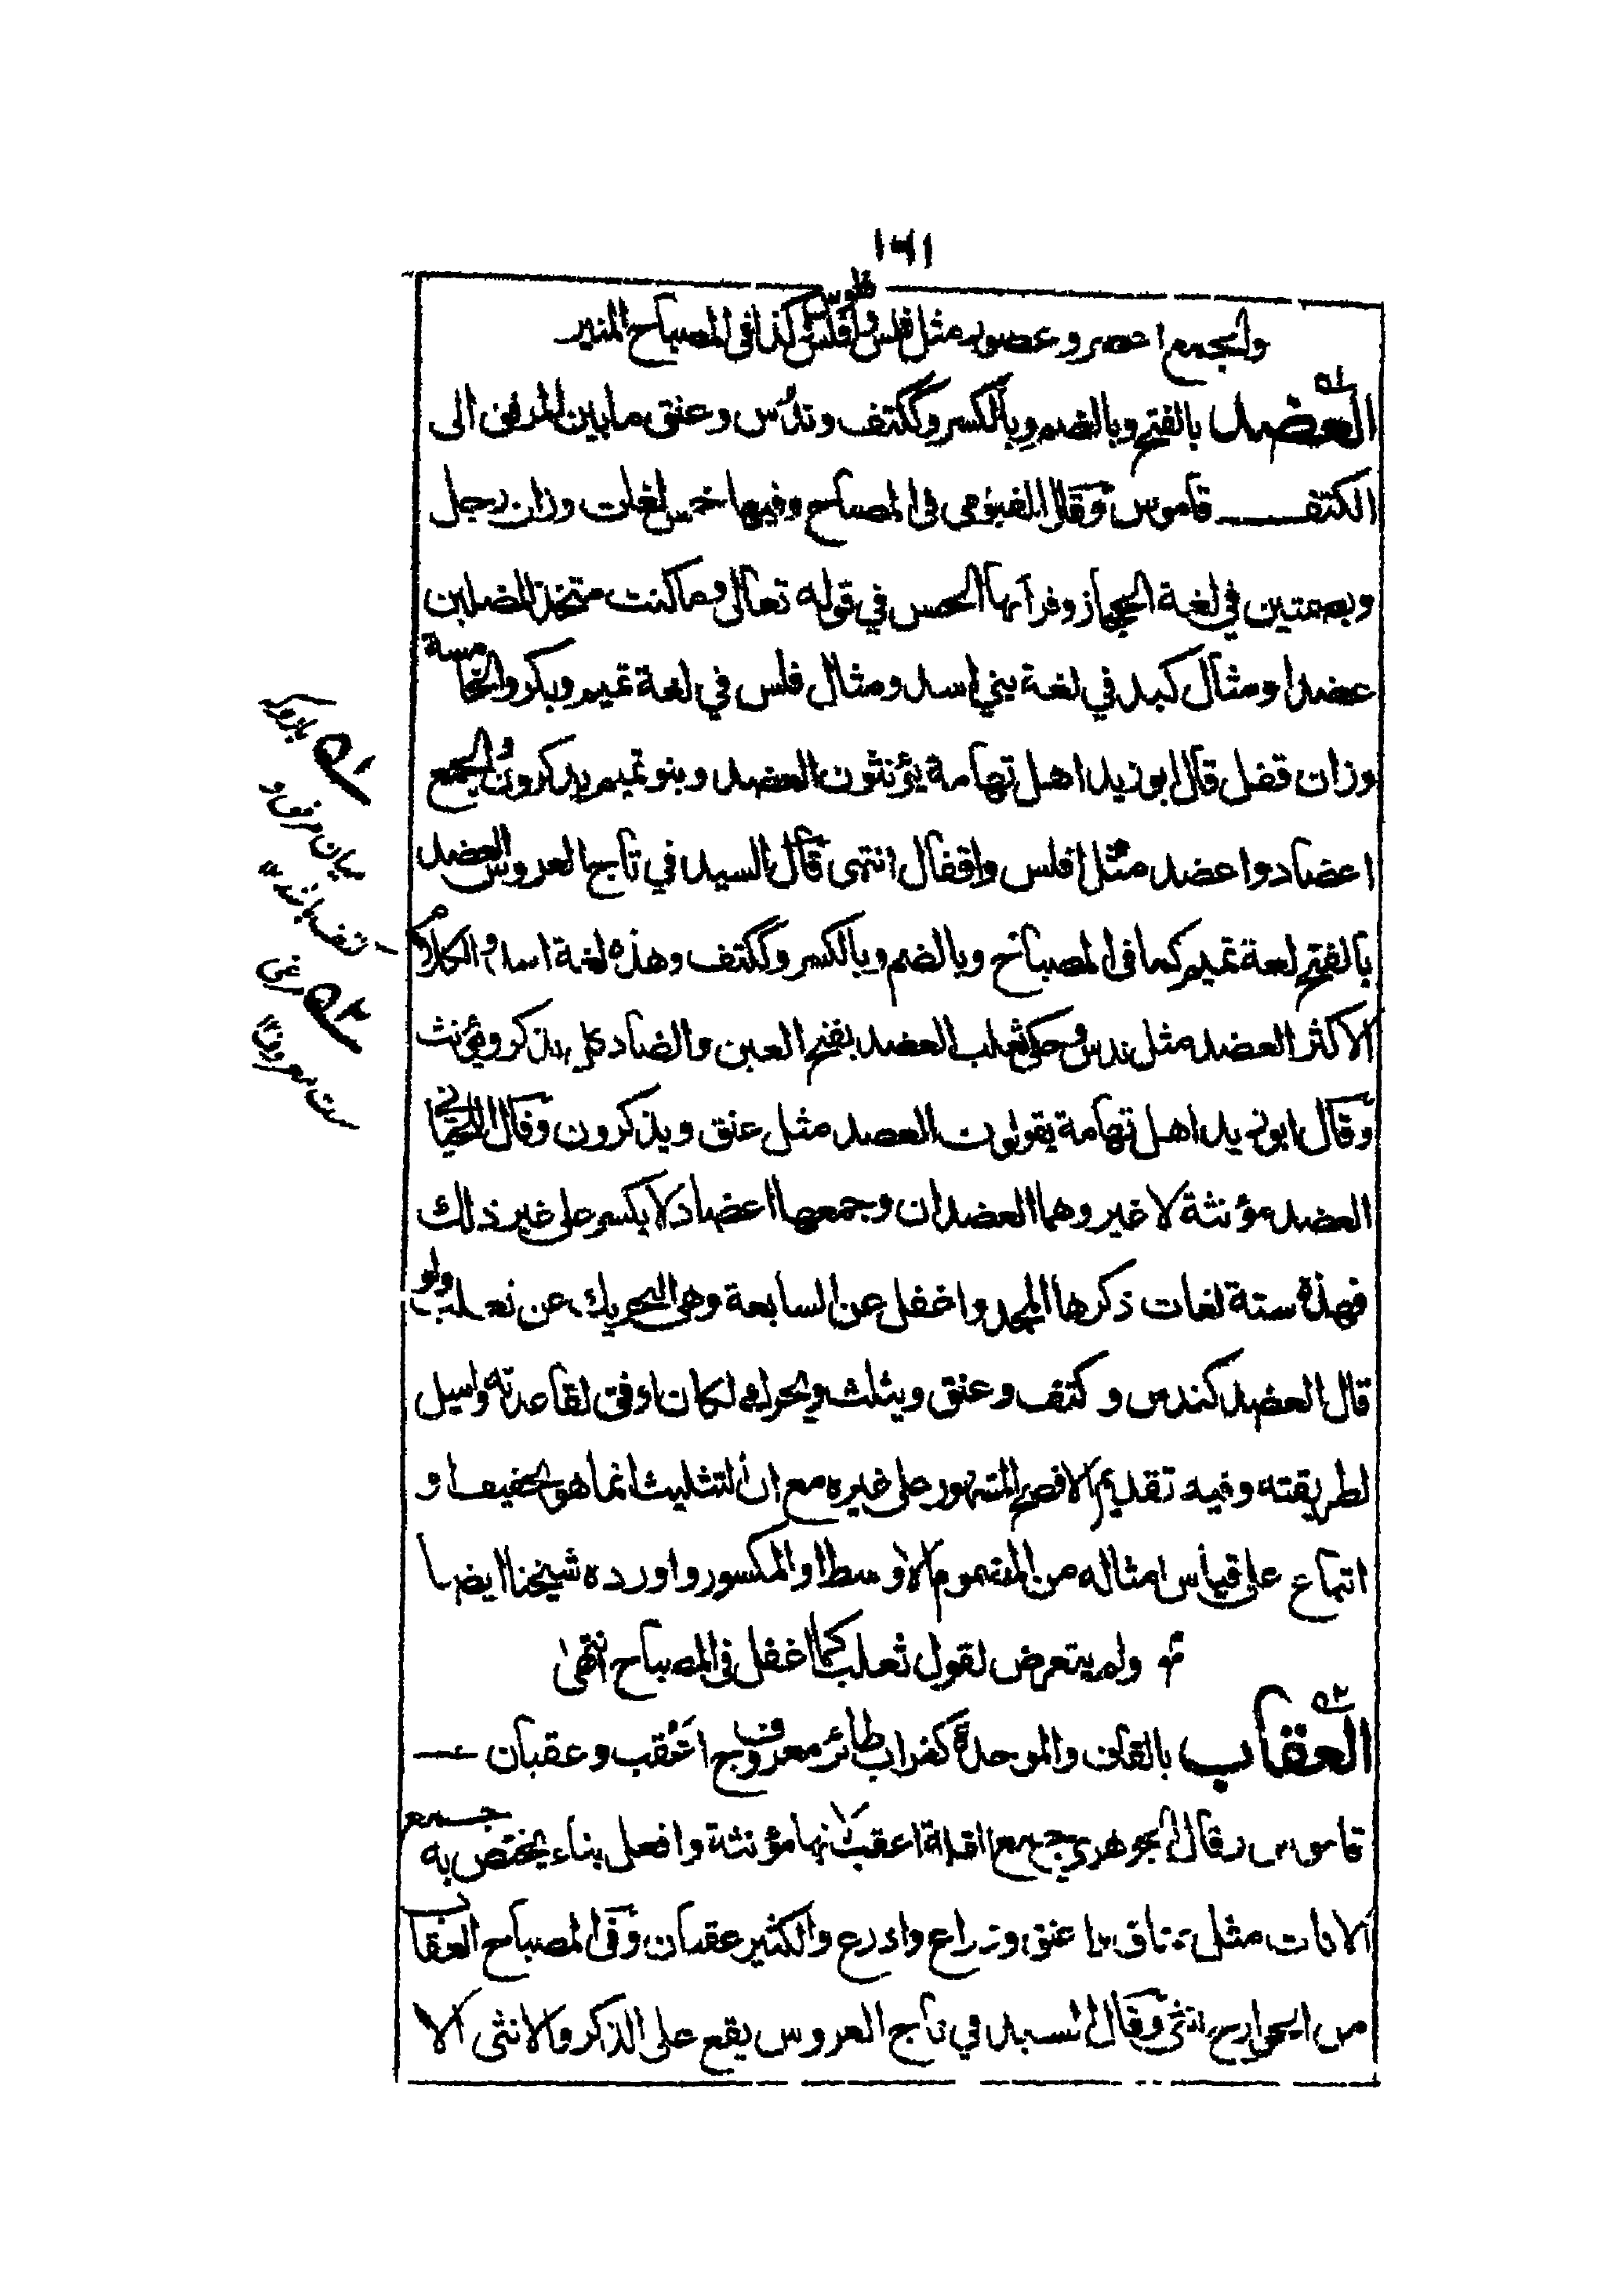 ١٦١
والجمع اعصر وعصور مثل فلس وافلس وفلوس كذا فى المصباح المنير
العضد بالفتح وبالضم وبالكسر وككتف وندس وعنق ما بين المرفق الى
الكتف قاموس وقال الفيومى فى المصباح وفيها خمس لغات وزان رجل
وبضمتين في لغة الحجاز وقرأ بها الحسن في قوله تعالى وما كنت متخذ المضلين
عضدا ومثال كبد في لغة بني اسد ومثال فلس في لغة تميم وبكر والخامسة
وزان قفل قال ابو زيد اهل تهامة يؤنثون العضد وبنو تميم يذكرون والجمع
اعضاد واعضد مثل افلس واقفال انتهى قال السيد في تاج العروس العضد
بالفتح لغة تميم كما فى المصباح وبالضم وبالكسر وككتف وهذه لغة اسد والكلام
الاكثر العضد مثل ندس وحكى ثعلب العضد بفتح العين والضاد كل يذكر ويؤنث
وقال ابو زيد اهل تهامة يقولون العضد مثل عنق ويذكرون وقال اللحياني
العضد مؤنثة لا غير وهما العضدان وجمعها اعضاد لا يكسر على غير ذلك
فهذه ستة لغات ذكرها المجد واغفل عن السابعة وهى التحريك عن ثعلب ولو
قال العضد كندس وكتف وعنق ويثلث ويحرك لكان اوفق لقاعدته واميل
لطريقته وفيه تقديم الافصح المشهور على غيره مع ان التثليث انما هو تخفيف او
اتباع على قياس امثاله من المضموم الاوسط او المكسور واورده شيخنا ايضا
ولم يتعرض لقول ثعلب كما اغفل فى المصباح انتهى
العقاب بالقاف والموحدة كغراب طائر معروف ج اعقب وعقبان
قاموس وقال الجوهري جمع القلة اعقب لانها مؤنثة وافعل بناء يختص به جمع
الاناث مثل عناق واعنق وذراع واذرع والكثير عقبان وفى المصباح العقاب
من الجوارح انثى وقال السيد في تاج العروس يقع على الذكر والانثى الا
٥١ بازو كه
ميان مرفق و
كتف باشد
٥٢ مرغى
ست معروف